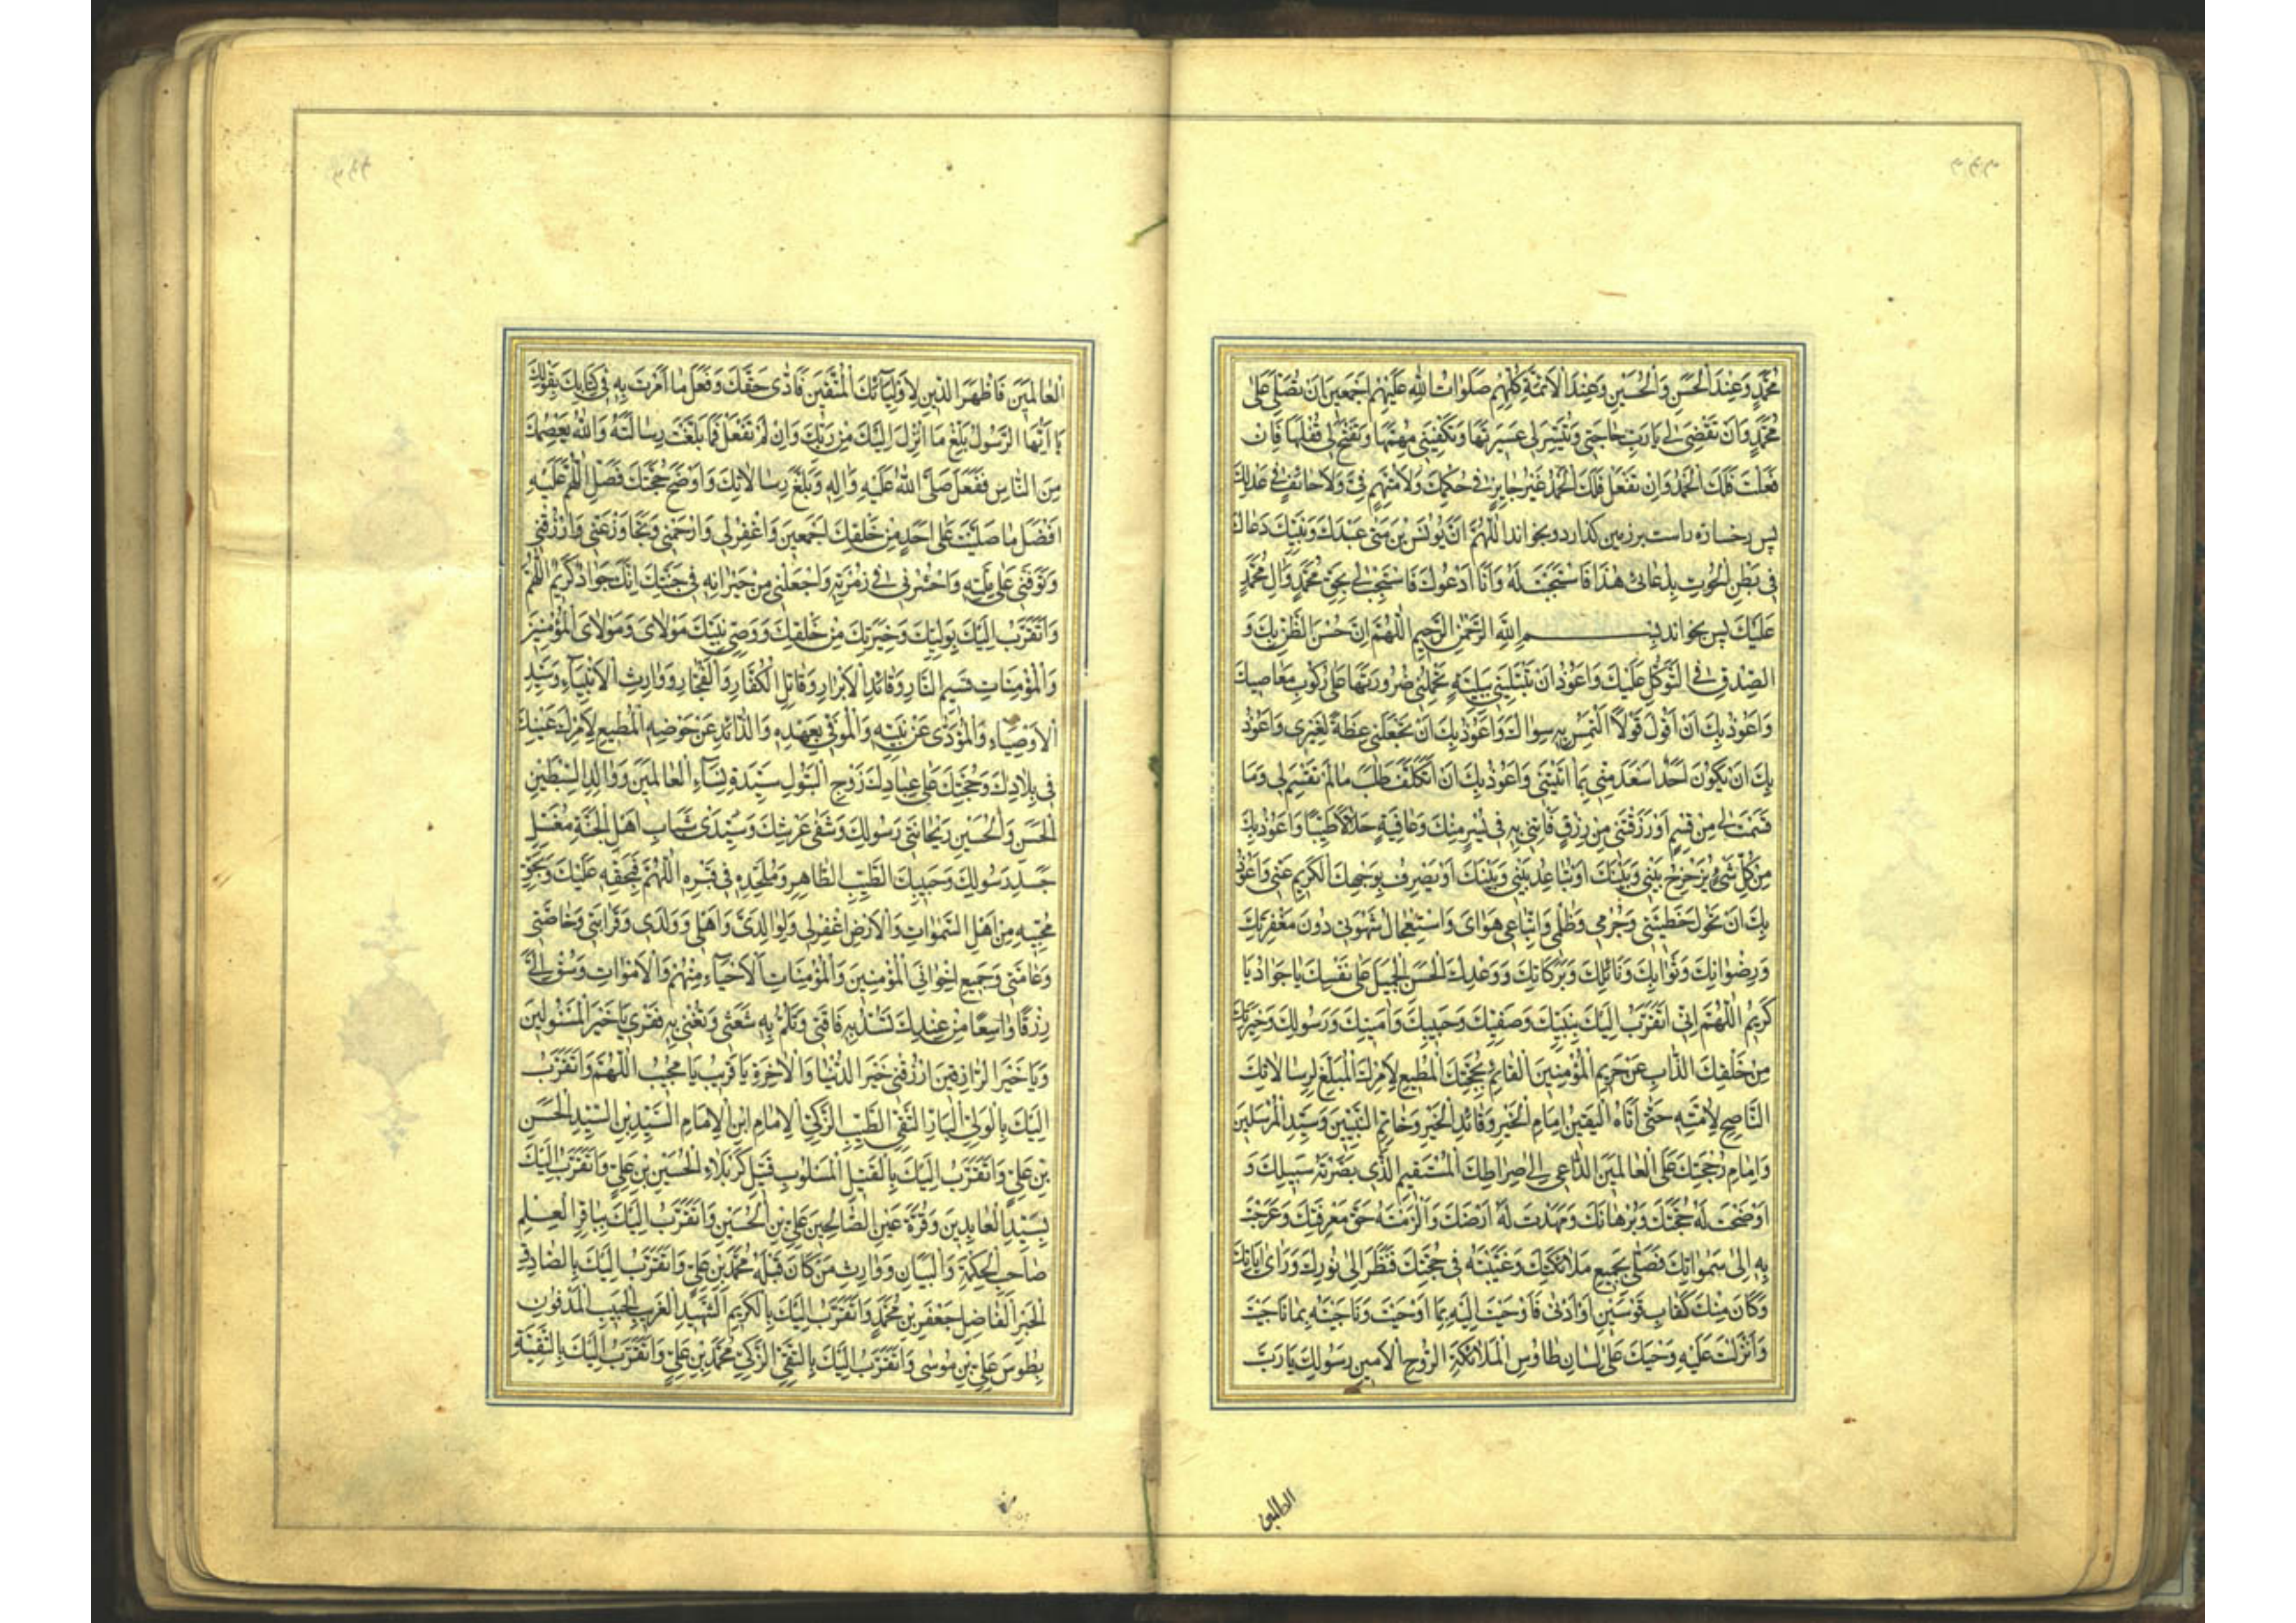 مُحَمَّدٍ وَعِنْدَ الْحَسَنِ وَالْحُسَيْنِ وَعِنْدَ الْاَئِمَّةِ كُلِّهِمْ صَلَوَاتُ اللهِ عَلَيْهِمْ اَجْمَعِينَ اَنْ تُصَلِّيَ عَلٰى
مُحَمَّدٍ وَاَنْ تَقْضِيَ لِي يَا رَبِّ حَاجَتِي وَتُيَسِّرَ لِي عَسِيرَتَهَا وَتَكْفِيَنِي مُهِمَّهَا وَتَفْتَحَ لِي قُفْلَهَا فَاِنْ
فَعَلْتَ فَلَكَ الْحَمْدُ وَاِنْ لَمْ تَفْعَلْ فَلَكَ الْحَمْدُ غَيْرَ جَايِرٍ فِي حُكْمِكَ وَلَا مُتَّهَمٍ فِي وَلَا حَائِفٍ فِي عَدْلِكَ
پس رخساره راست بر زمین گذارد و بخواند اَللّٰهُمَّ اِنَّ يُونُسَ بْنَ مَتّٰى عَبْدَكَ وَنَبِيَّكَ دَعَاكَ
فِي بَطْنِ الْحُوتِ بِدُعَائِي هٰذَا فَاسْتَجَبْتَ لَهُ وَاَنَا اَدْعُوكَ فَاسْتَجِبْ لِي بِحَقِّ مُحَمَّدٍ وَاٰلِ مُحَمَّدٍ
عَلَيْكَ پس بخواند بِسْمِ اللهِ الرَّحْمٰنِ الرَّحِيمِ اَللّٰهُمَّ اِنَّ حُسْنَ الظَّنِّ بِكَ وَ
الصِّدْقَ فِي التَّوَكُّلِ عَلَيْكَ وَاَعُوذُ اَنْ تَبْتَلِيَنِي بِبَلِيَّةٍ تَحْمِلُنِي ضَرُورَتُهَا عَلٰى رُكُوبِ مَعَاصِيكَ
وَاَعُوذُ بِكَ اَنْ اَقُولَ قَوْلًا اَلْتَمِسُ بِهِ سِوَاكَ وَاَعُوذُ بِكَ اَنْ تَجْعَلَنِي عِظَةً لِغَيْرِي وَاَعُوذُ
بِكَ اَنْ يَكُونَ اَحَدٌ اَسْعَدَ مِنِّي بِمَا اٰتَيْتَنِي وَاَعُوذُ بِكَ اَنْ اَتَكَلَّفَ طَلَبَ مَا لَمْ تَقْسِمْ لِي وَمَا
قَسَمْتَ لِي مِنْ قِسْمٍ اَوْ رَزَقْتَنِي مِنْ رِزْقٍ فَاٰتِنِي بِهِ فِي يُسْرٍ مِنْكَ وَعَافِيَةٍ حَلَالًا طَيِّبًا وَاَعُوذُ بِكَ
مِنْ كُلِّ شَيْءٍ يُزَحْزِحُ بَيْنِي وَبَيْنَكَ اَوْ يُبَاعِدُ بَيْنِي وَبَيْنَكَ اَوْ يَصْرِفُ بِوَجْهِكَ الْكَرِيمِ عَنِّي وَاَعُوذُ
بِكَ اَنْ تَحُولَ خَطِيئَتِي وَجُرْمِي وَظُلْمِي وَاتِّبَاعِي هَوَايَ وَاسْتِعْجَالُ شَهْوَتِي دُونَ مَغْفِرَتِكَ
وَرِضْوَانِكَ وَثَوَابِكَ وَنَائِلِكَ وَبَرَكَاتِكَ وَوَعْدِكَ الْحَسَنِ الْجَمِيلِ عَلٰى نَفْسِكَ يَا جَوَادُ يَا
كَرِيمُ اَللّٰهُمَّ اِنِّي اَتَقَرَّبُ اِلَيْكَ بِنَبِيِّكَ وَصَفِيِّكَ وَحَبِيبِكَ وَاَمِينِكَ وَرَسُولِكَ وَخِيَرَتِكَ
مِنْ خَلْقِكَ الذَّابِّ عَنْ حَرِيمِ الْمُؤْمِنِينَ الْقَائِمِ بِحُجَّتِكَ الْمُطِيعِ لِاَمْرِكَ الْمُبَلِّغِ لِرِسَالَاتِكَ
النَّاصِحِ لِاُمَّتِهِ حَتّٰى اَتَاهُ الْيَقِينُ اِمَامِ الْخَيْرِ وَقَائِدِ الْخَيْرِ وَخَاتِمِ النَّبِيِّينَ وَسَيِّدِ الْمُرْسَلِينَ
وَاِمَامِ حُجَّتِكَ عَلَى الْعَالَمِينَ الدَّاعِي اِلٰى صِرَاطِكَ الْمُسْتَقِيمِ الَّذِي بَصَّرْتَهُ سَبِيلَكَ وَ
اَوْضَحْتَ لَهُ حُجَّتَكَ وَبُرْهَانَكَ وَمَهَّدْتَ لَهُ اَرْضَكَ وَاَلْزَمْتَهُ حَقَّ مَعْرِفَتِكَ وَعَرَجْتَ
بِهِ اِلٰى سَمٰوَاتِكَ فَصَلّٰى بِجَمِيعِ مَلَائِكَتِكَ وَغَيَّبْتَهُ فِي حُجُبِكَ فَنَظَرَ اِلٰى نُورِكَ وَرَاٰى اٰيَاتِكَ
وَكَانَ مِنْكَ كَقَابِ قَوْسَيْنِ اَوْ اَدْنٰى فَاَوْحَيْتَ اِلَيْهِ بِمَا اَوْحَيْتَ وَنَاجَيْتَهُ بِمَا نَاجَيْتَ
وَاَنْزَلْتَ عَلَيْهِ وَحْيَكَ عَلٰى لِسَانِ طَاوُسِ الْمَلَائِكَةِ الرُّوحِ الْاَمِينِ رَسُولِكَ يَا رَبَّ
العالمین
الْعَالَمِينَ فَاَظْهَرَ الدِّينَ لِاَوْلِيَائِكَ الْمُتَّقِينَ فَاَدّٰى حَقَّكَ وَفَعَلَ مَا اَمَرْتَ بِهِ فِي كِتَابِكَ بِقَوْلِكَ
يَا اَيُّهَا الرَّسُولُ بَلِّغْ مَا اُنْزِلَ اِلَيْكَ مِنْ رَبِّكَ وَاِنْ لَمْ تَفْعَلْ فَمَا بَلَّغْتَ رِسَالَتَهُ وَاللهُ يَعْصِمُكَ
مِنَ النَّاسِ فَفَعَلَ صَلَّى اللهُ عَلَيْهِ وَاٰلِهِ وَبَلَّغَ رِسَالَاتِكَ وَاَوْضَحَ حُجَّتَكَ فَصَلِّ اللّٰهُمَّ عَلَيْهِ
اَفْضَلَ مَا صَلَّيْتَ عَلٰى اَحَدٍ مِنْ خَلْقِكَ اَجْمَعِينَ وَاغْفِرْ لِي وَارْحَمْنِي وَتَجَاوَزْ عَنِّي وَارْزُقْنِي
وَتَوَفَّنِي عَلٰى مِلَّتِهِ وَاحْشُرْنِي فِي زُمْرَتِهِ وَاجْعَلْنِي مِنْ جِيرَانِهِ فِي جَنَّتِكَ اِنَّكَ جَوَادٌ كَرِيمٌ اَللّٰهُمَّ
وَاَتَقَرَّبُ اِلَيْكَ بِوَلِيِّكَ وَخِيَرَتِكَ مِنْ خَلْقِكَ وَوَصِيِّ نَبِيِّكَ مَوْلَايَ وَمَوْلَى الْمُؤْمِنِينَ
وَالْمُؤْمِنَاتِ قَسِيمِ النَّارِ وَقَائِدِ الْاَبْرَارِ وَقَاتِلِ الْكُفَّارِ وَالْفُجَّارِ وَوَارِثِ الْاَنْبِيَاءِ وَسَيِّدِ
الْاَوْصِيَاءِ وَالْمُؤَدِّي عَنْ نَبِيِّهِ وَالْمُوفِي بِعَهْدِهِ وَالذَّائِدِ عَنْ حَوْضِهِ الْمُطِيعِ لِاَمْرِكَ عَيْنِكَ
فِي بِلَادِكَ وَحُجَّتِكَ عَلٰى عِبَادِكَ زَوْجِ الْبَتُولِ سَيِّدَةِ نِسَاءِ الْعَالَمِينَ وَوَالِدِ السِّبْطَيْنِ
الْحَسَنِ وَالْحُسَيْنِ رَيْحَانَتَيْ رَسُولِكَ وَشَنْفَيْ عَرْشِكَ وَسَيِّدَيْ شَبَابِ اَهْلِ الْجَنَّةِ مُغَسِّلِ
جَسَدِ رَسُولِكَ وَحَبِيبِكَ الطَّيِّبِ الطَّاهِرِ وَمُلْحِدِهِ فِي قَبْرِهِ اَللّٰهُمَّ فَبِحَقِّهِ عَلَيْكَ وَبِحَقِّ
مُحِبِّيهِ مِنْ اَهْلِ السَّمٰوَاتِ وَالْاَرْضِ اغْفِرْ لِي وَلِوَالِدَيَّ وَاَهْلِي وَوَلَدِي وَقَرَابَتِي وَخَاصَّتِي
وَعَامَّتِي وَجَمِيعِ اِخْوَانِيَ الْمُؤْمِنِينَ وَالْمُؤْمِنَاتِ الْاَحْيَاءِ مِنْهُمْ وَالْاَمْوَاتِ وَسُقْ اِلَيَّ
رِزْقًا وَاسِعًا مِنْ عِنْدِكَ تَسُدُّ بِهِ فَاقَتِي وَتَلُمُّ بِهِ شَعَثِي وَتُغْنِي بِهِ فَقْرِي يَا خَيْرَ الْمَسْئُولِينَ
وَيَا خَيْرَ الرَّازِقِينَ ارْزُقْنِي خَيْرَ الدُّنْيَا وَالْاٰخِرَةِ يَا قَرِيبُ يَا مُجِيبُ اَللّٰهُمَّ وَاَتَقَرَّبُ
اِلَيْكَ بِالْوَلِيِّ الْبَارِّ التَّقِيِّ الطَّيِّبِ الزَّكِيِّ الْاِمَامِ ابْنِ الْاِمَامِ السَّيِّدِ بْنِ السَّيِّدِ الْحَسَنِ
بْنِ عَلِيٍّ وَاَتَقَرَّبُ اِلَيْكَ بِالْقَتِيلِ الْمَسْلُوبِ قَتِيلِ كَرْبَلَاءِ الْحُسَيْنِ بْنِ عَلِيٍّ وَاَتَقَرَّبُ اِلَيْكَ
بِسَيِّدِ الْعَابِدِينَ وَقُرَّةِ عَيْنِ الصَّالِحِينَ عَلِيِّ بْنِ الْحُسَيْنِ وَاَتَقَرَّبُ اِلَيْكَ بِبَاقِرِ الْعِلْمِ
صَاحِبِ الْحِكْمَةِ وَالْبَيَانِ وَوَارِثِ مَنْ كَانَ قَبْلَهُ مُحَمَّدِ بْنِ عَلِيٍّ وَاَتَقَرَّبُ اِلَيْكَ بِالصَّادِقِ
الْخَيِّرِ الْفَاضِلِ جَعْفَرِ بْنِ مُحَمَّدٍ وَاَتَقَرَّبُ اِلَيْكَ بِالْكَرِيمِ الشَّهِيدِ الْغَرِيبِ الْحَبِيبِ الْمَدْفُونِ
بِطُوسَ عَلِيِّ بْنِ مُوسٰى وَاَتَقَرَّبُ اِلَيْكَ بِالتَّقِيِّ الزَّكِيِّ مُحَمَّدِ بْنِ عَلِيٍّ وَاَتَقَرَّبُ اِلَيْكَ بِالنَّقِيِّ